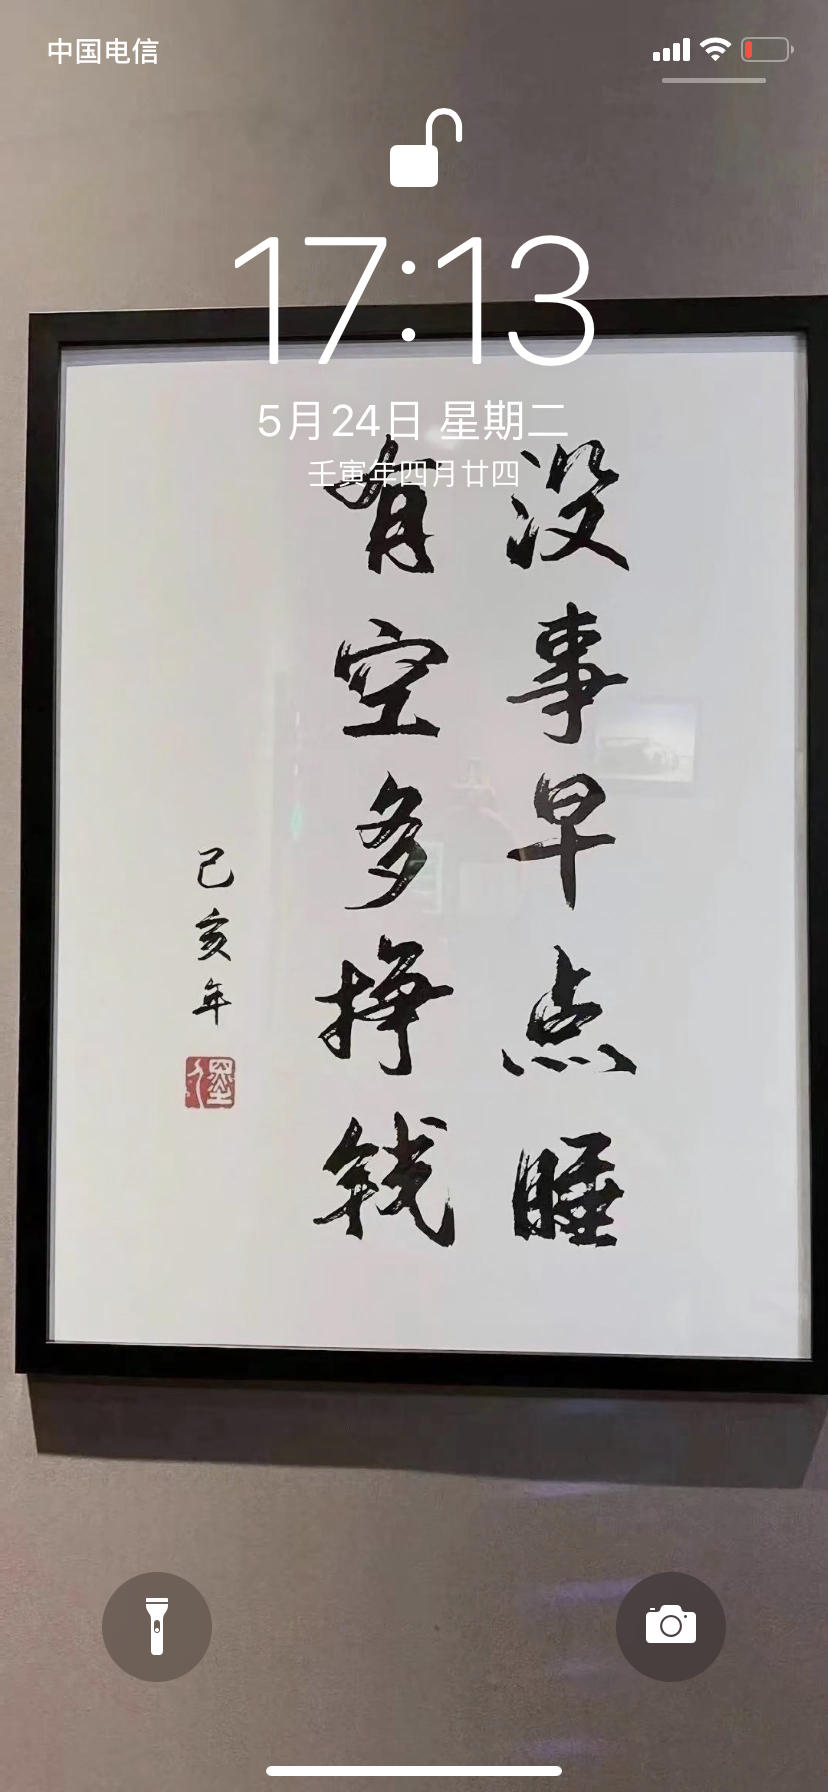 中国电信
17:13
5月24日 星期二
壬寅年四月廿四
没事早点睡
有空多挣钱
己亥年